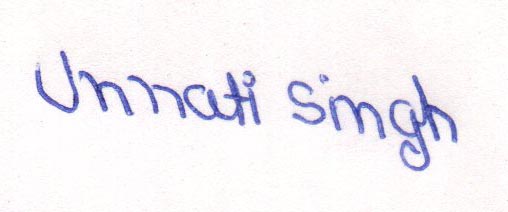 Unnati Singh